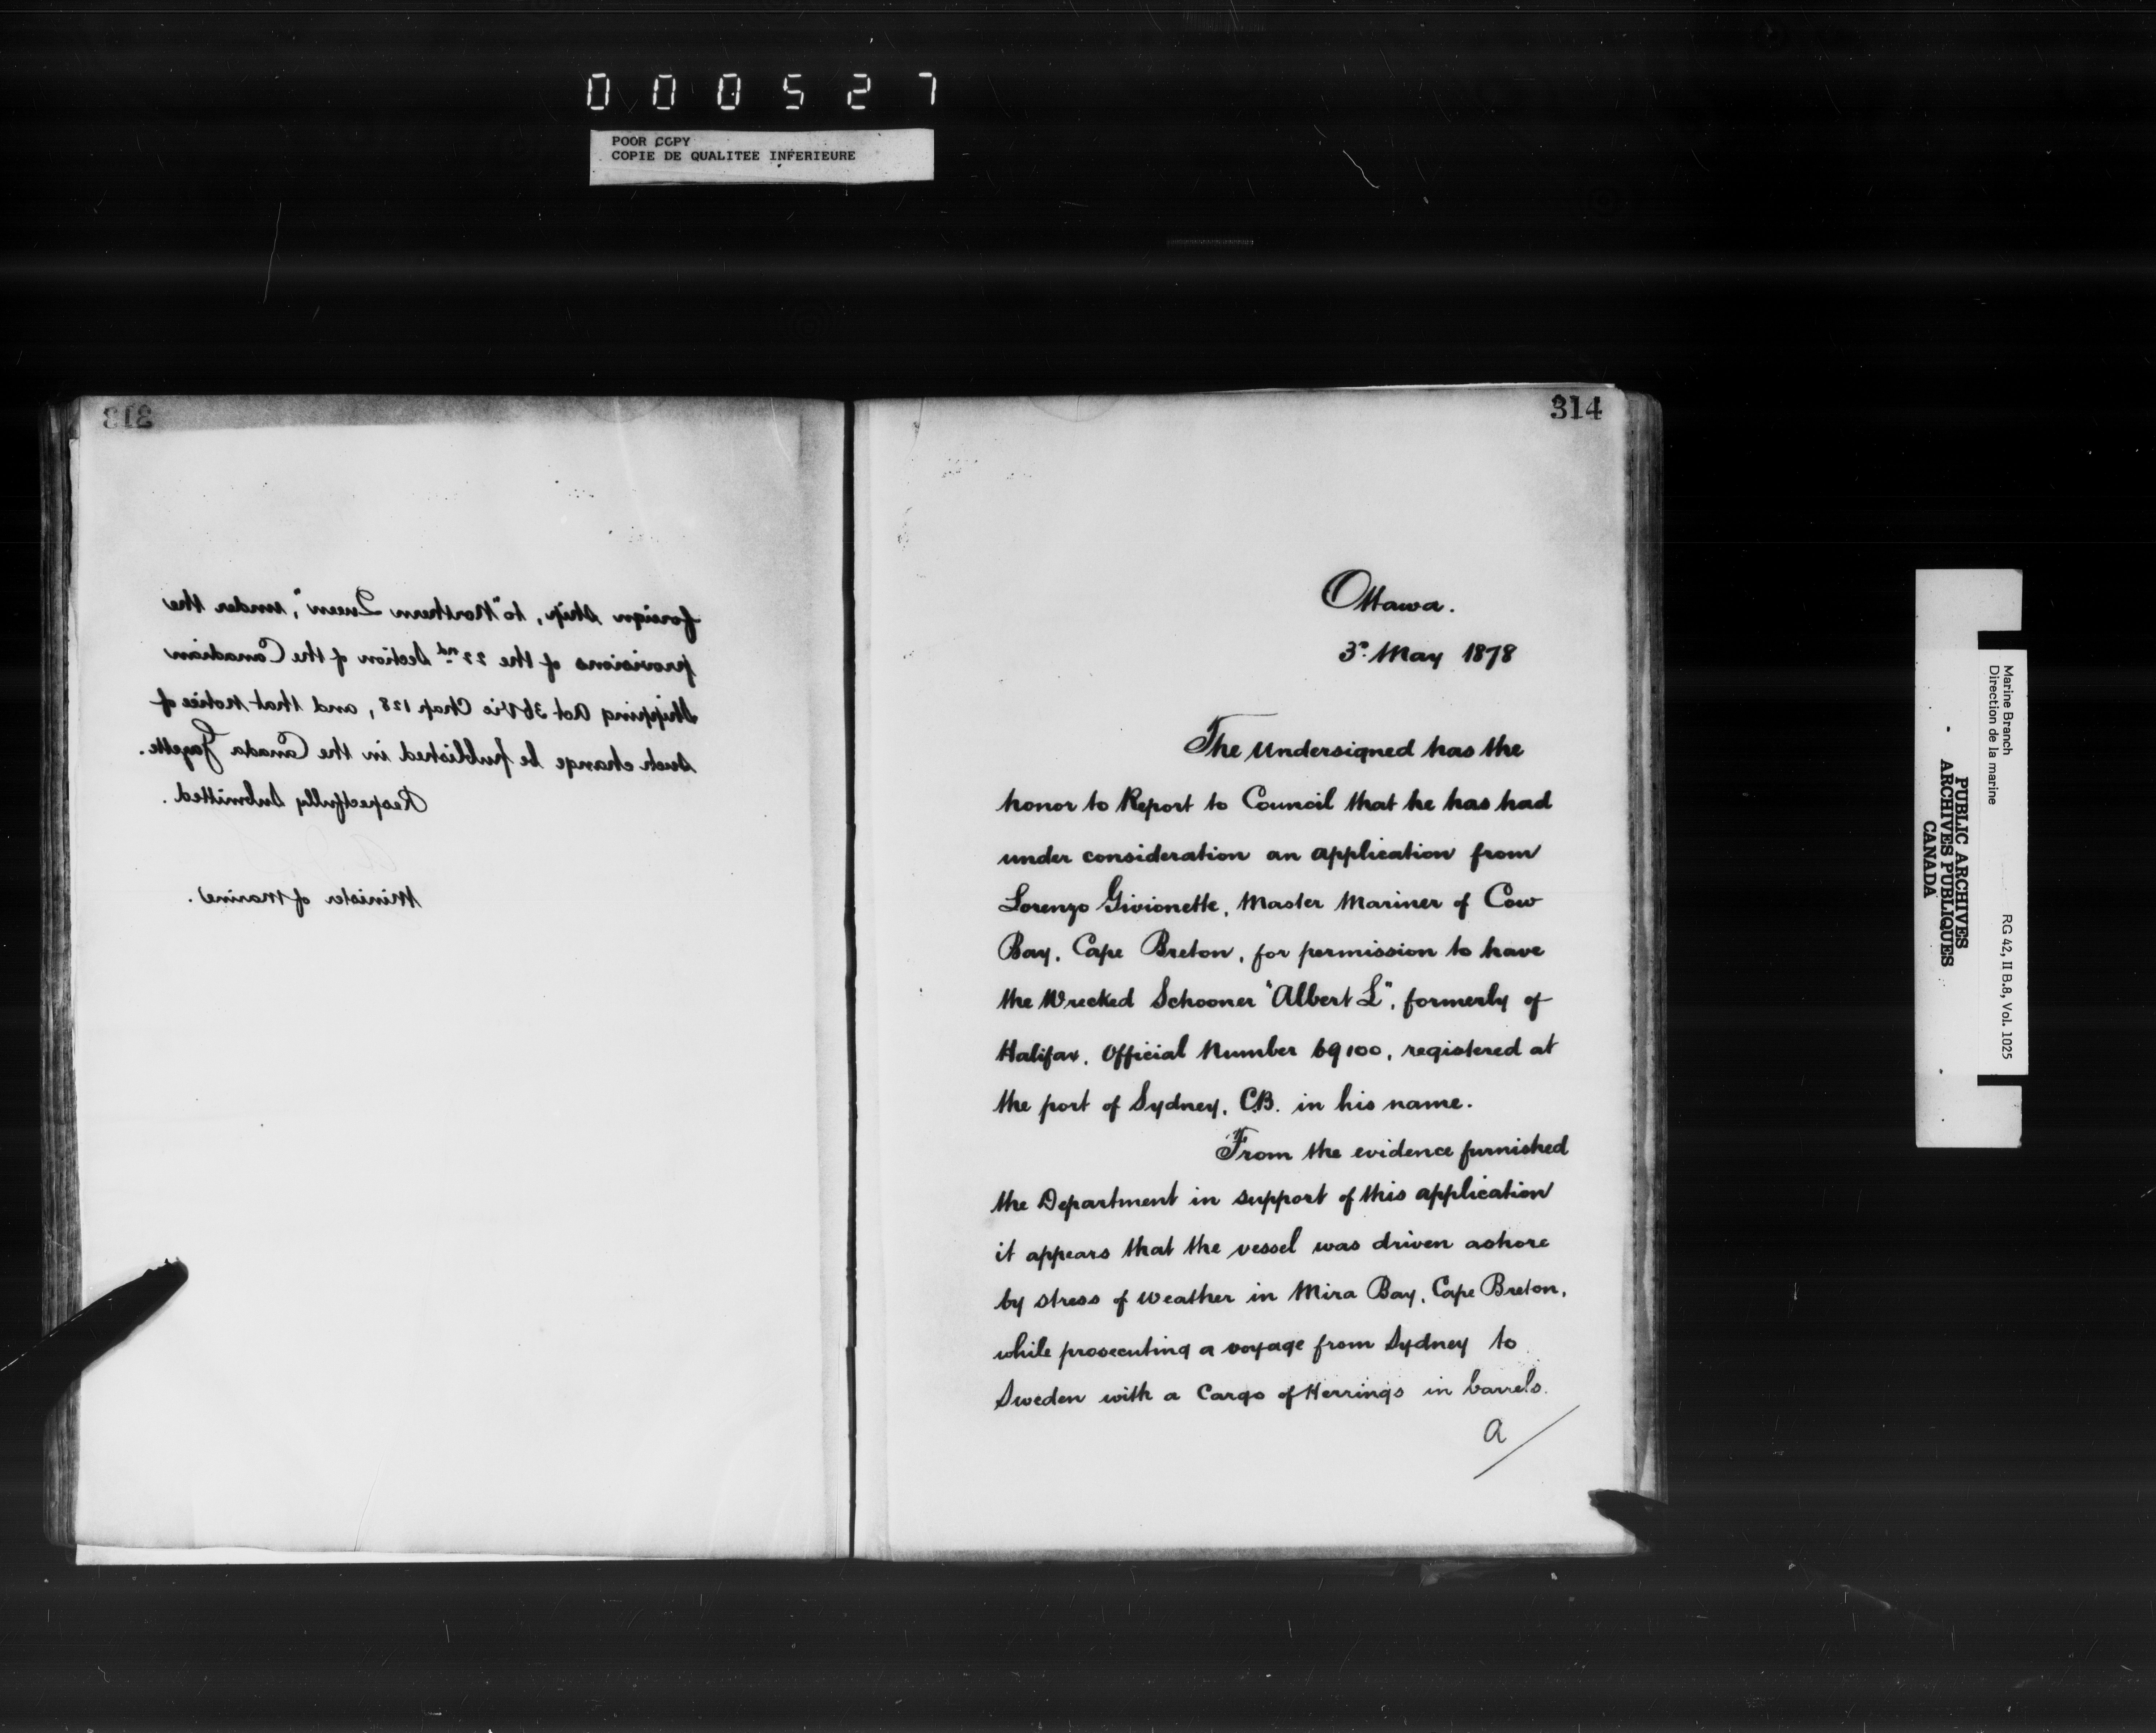 000527
POOR COPY
COPIE DE QUALITEE INFERIEURE
313
foreign ship, to "Northern Queen", under the
provisions of the 22nd Section of the Canadian
Shipping Act 36 Vic Chap 128, and that notice of
such change be published in the Canada Gazette.
Respectfully Submitted.
Minister of Marine.
314
Ottawa.
3rd May 1878
The Undersigned has the
honor to Report to Council that he has had
under consideration an application from
Lorenzo Givionette, Master Mariner of Cow
Bay, Cape Breton, for permission to have
the Wrecked Schooner "Albert L", formerly of
Halifax, Official Number 69100, registered at
the port of Sydney, C.B. in his name.
From the evidence furnished
the Department in support of this application
it appears that the vessel was driven ashore
by stress of weather in Mira Bay, Cape Breton,
while prosecuting a voyage from Sydney to
Sweden with a Cargo of Herrings in barrels.
A
Marine Branch
Direction de la marine
RG 42, II B.8, Vol. 1025
PUBLIC ARCHIVES
ARCHIVES PUBLIQUES
CANADA